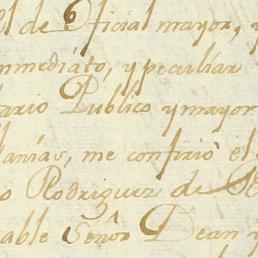 l de Oficial mayor, y
nmediáto, y peculiar
tario Publico y mayor
lanías, me confirió el
o Rodriguez de
cable Señor Dean y